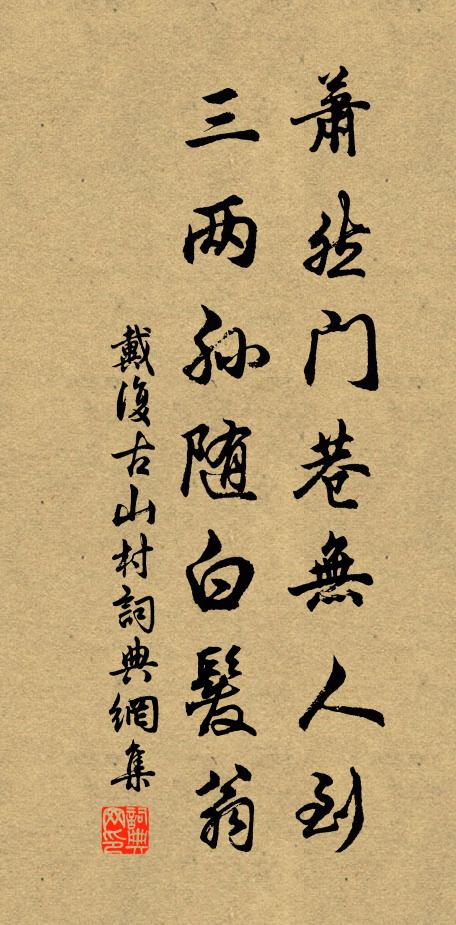 蕭然門巷無人到
三两孙随白髮翁
戴復古山村詞典網集
詞典网印